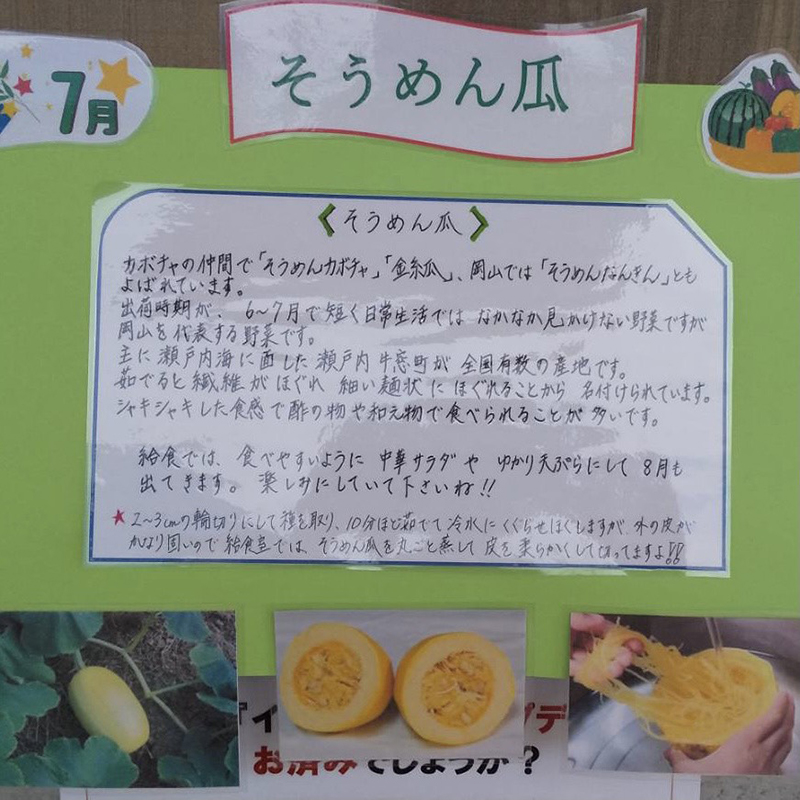 7月
そうめん瓜
《そうめん瓜》
カボチャの仲間で「そうめんカボチャ」「金糸瓜」、岡山では「そうめんなんきん」とも
よばれています。
出荷時期が、6〜7月で短く日常生活では なかなか見かけない野菜ですが
岡山を代表する野菜です。
主に瀬戸内海に面した瀬戸内牛窓町が全国有数の産地です。
茹でると繊維がほぐれ 細い麺状にほぐれることから 名付けられています。
シャキシャキした食感で酢の物や和え物で食べられることが多いです。
給食では、食べやすいように 中華サラダや ゆかり天ぷらにして 8月も
出てきます。楽しみにしていて下さいね!!
★2〜3cmの輪切りにして種を取り、10分ほど茹でて冷水にくぐらせほぐしますが、外の皮が
かなり固いので給食室では、そうめん瓜を丸ごと蒸して皮を柔らかくして切ってますよ!!
デ
お済みでしょうか?